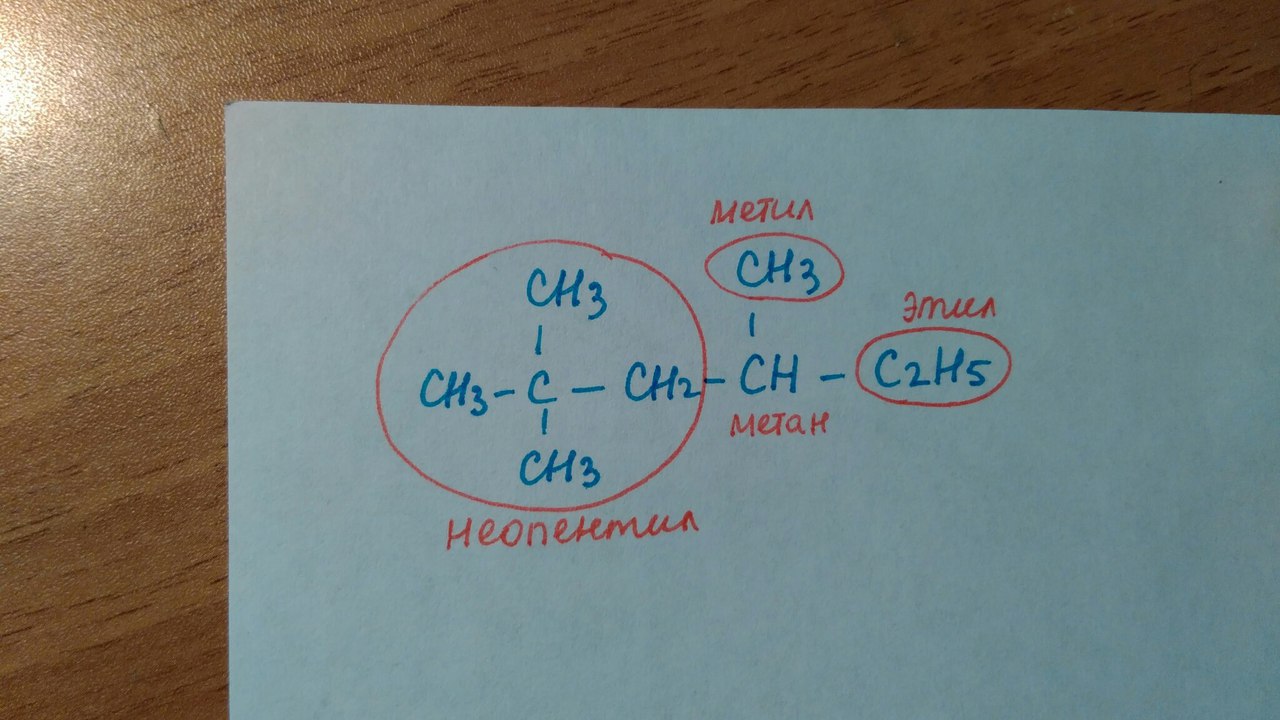 метил
CH3
CH3
этил
CH3 - C - CH2 - CH - C2H5
метан
CH3
неопентил